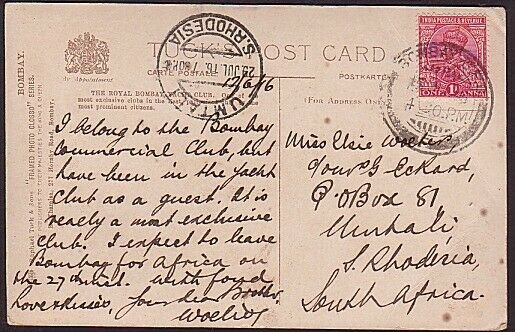 TUCK'S POST CARD
By Appointment
CARTE POSTALE
POSTKARTE
THE ROYAL BOMBAY YACHT CLUB,
most exclusive clubs in the East
most prominent citizens.
(For Address Only.)
BOMBAY.
Raphael Tuck & Sons' "FRAMED PHOTO GLOSSO" SERIES.
PUBLISHERS TO THEIR MAJESTIES THE KING & QUEEN
271 Hornby Road, Bombay.
UMTALI
S. RHODESIA
JUL 16
INDIA POSTAGE & REVENUE
ONE ANNA
BOMBAY
P.M.
12/6/16
I belong to the Bombay
Commercial Club, but
have been in the Yacht
Club as a guest. It is
really a most exclusive
Club. I expect to leave
Bombay for Africa on
the 27th inst. With fond
love & kisses, your dear Brother
Miss Elsie
G Eckard,
P.O Box 81,
Umtali,
S. Rhodesia,
South Africa.